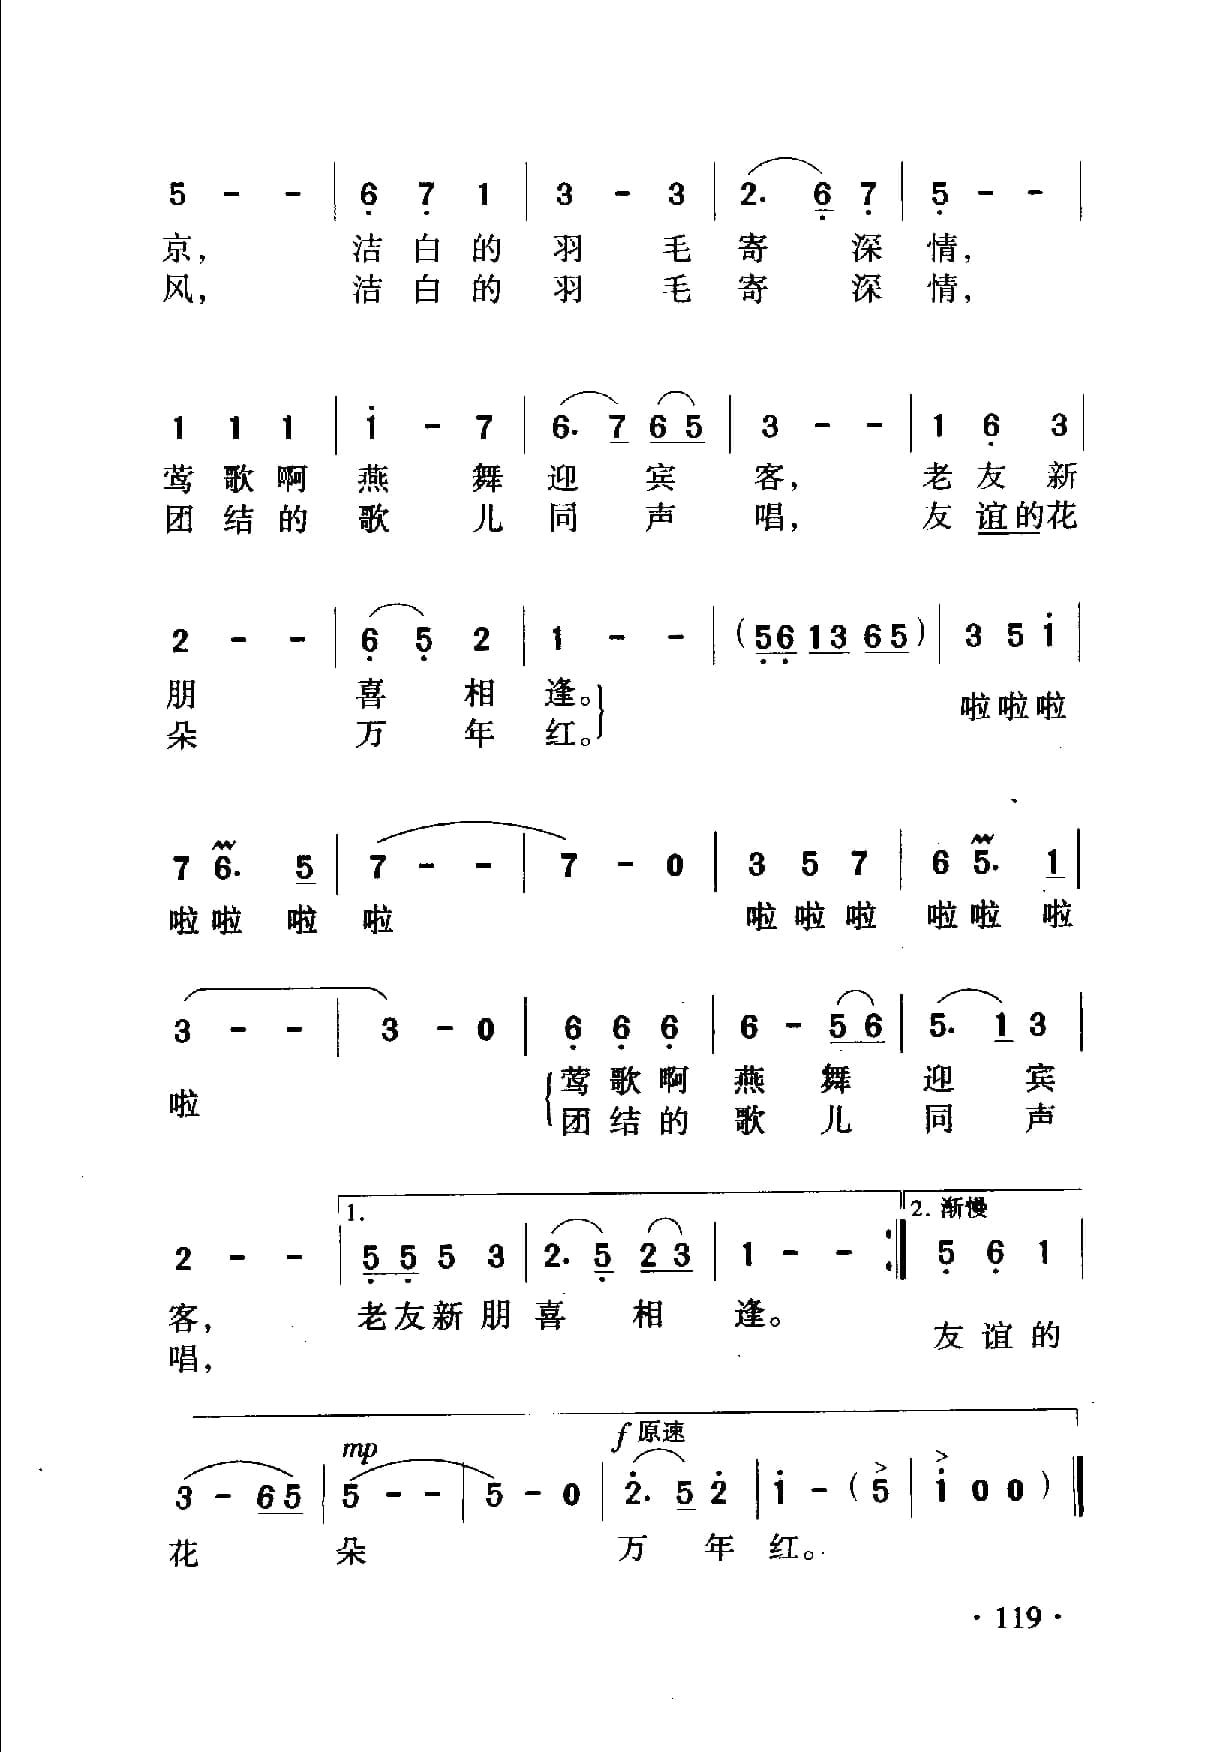 5 - - | 6̣ 7̣ 1 | 3 - 3 | 2. 6̣ 7̣ | 5̣ - - |
京， 洁 白 的 羽 毛 寄 深 情，
风， 洁 白 的 羽 毛 寄 深 情，
1 1 1 | i̇ - 7 | 6. 7 6 5 | 3 - - | 1 6̣ 3 |
莺 歌 啊 燕 舞 迎 宾 客， 老 友 新
团 结 的 歌 儿 同 声 唱， 友 谊 的 花
2 - - | 6̣ 5̣ 2 | 1 - - | (5̣6̣ 13 65) | 3 5 i̇ |
朋 喜 相 逢。
朵 万 年 红。
啦 啦 啦
7 6. 5 | 7 - - | 7 - 0 | 3 5 7 | 6 5. 1 |
啦 啦 啦 啦 啦 啦 啦 啦 啦 啦
3 - - | 3 - 0 | 6̣ 6̣ 6̣ | 6 - 5 6 | 5. 1 3 |
莺 歌 啊 燕 舞 迎 宾
啦
团 结 的 歌 儿 同 声
1. 2. 渐慢
2 - - | 5̣ 5̣ 5 3 | 2. 5̣ 2 3 | 1 - - :| 5̣ 6̣ 1 |
客， 老 友 新 朋 喜 相 逢。
友 谊 的
唱，
mp f 原速
3 - 6 5 | 5 - - | 5 - 0 | 2̇. 5 2̇ | i̇ - ( 5 | i̇ 0 0 ) ‖
花 朵 万 年 红。
· 119 ·